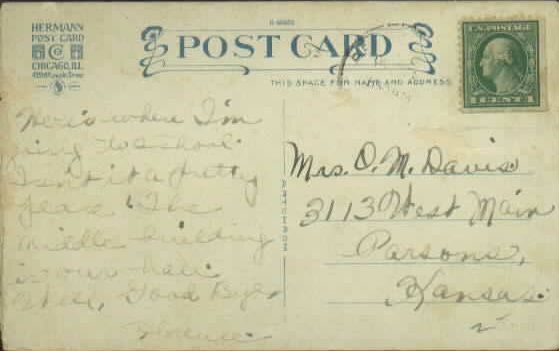 HERMANN
POST CARD
CO
CHICAGO, ILL.
POST CARD
THIS SPACE FOR NAME AND ADDRESS
U.S. POSTAGE
1 CENT 1
Here's where I'm
going to school.
Isn't it a pretty
place? The
middle building
is our hall.
Well, Good Bye
Florence.
ARTCHROM
Mrs. O. M. Davis
3113 West Main
Parsons,
Kansas.